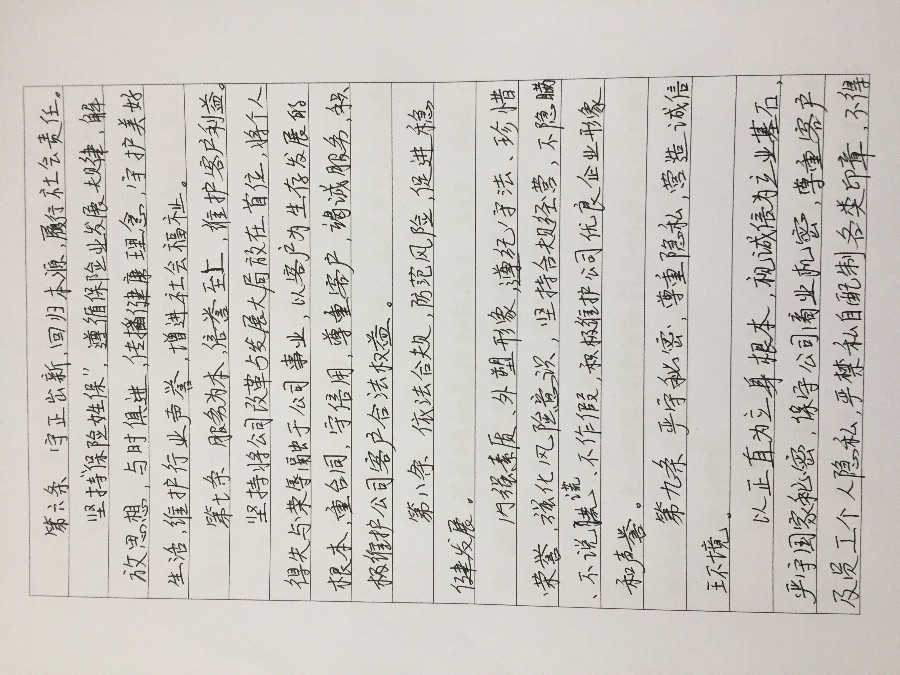 第六条 守正出新,回归本源,履行社会责任。
坚持“保险姓保”,遵循保险业发展规律,解
放思想,与时俱进,传播健康理念,守护美好
生活,维护行业声誉,增进社会福祉。
第七条 服务为本,信誉至上,维护客户利益。
坚持将公司改革与发展大局放在首位,将个人
得失与荣辱融于公司事业,以客户为生存发展的
根本,重合同,守信用,尊重客户,竭诚服务,积
极维护公司客户合法权益。
第八条 依法合规,防范风险,促进稳
健发展。
内强素质、外塑形象,遵纪守法、珍惜
荣誉,强化风险意识,坚持合规经营,不隐瞒
、不说谎、不作假,积极维护公司优良企业形象
和声誉。
第九条 严守秘密,尊重隐私,营造诚信
环境。
以正直为立身根本,视诚信为立业基石,
严守国家秘密,保守公司商业机密,尊重客户
及员工个人隐私,严禁私自配制各类印章,不得